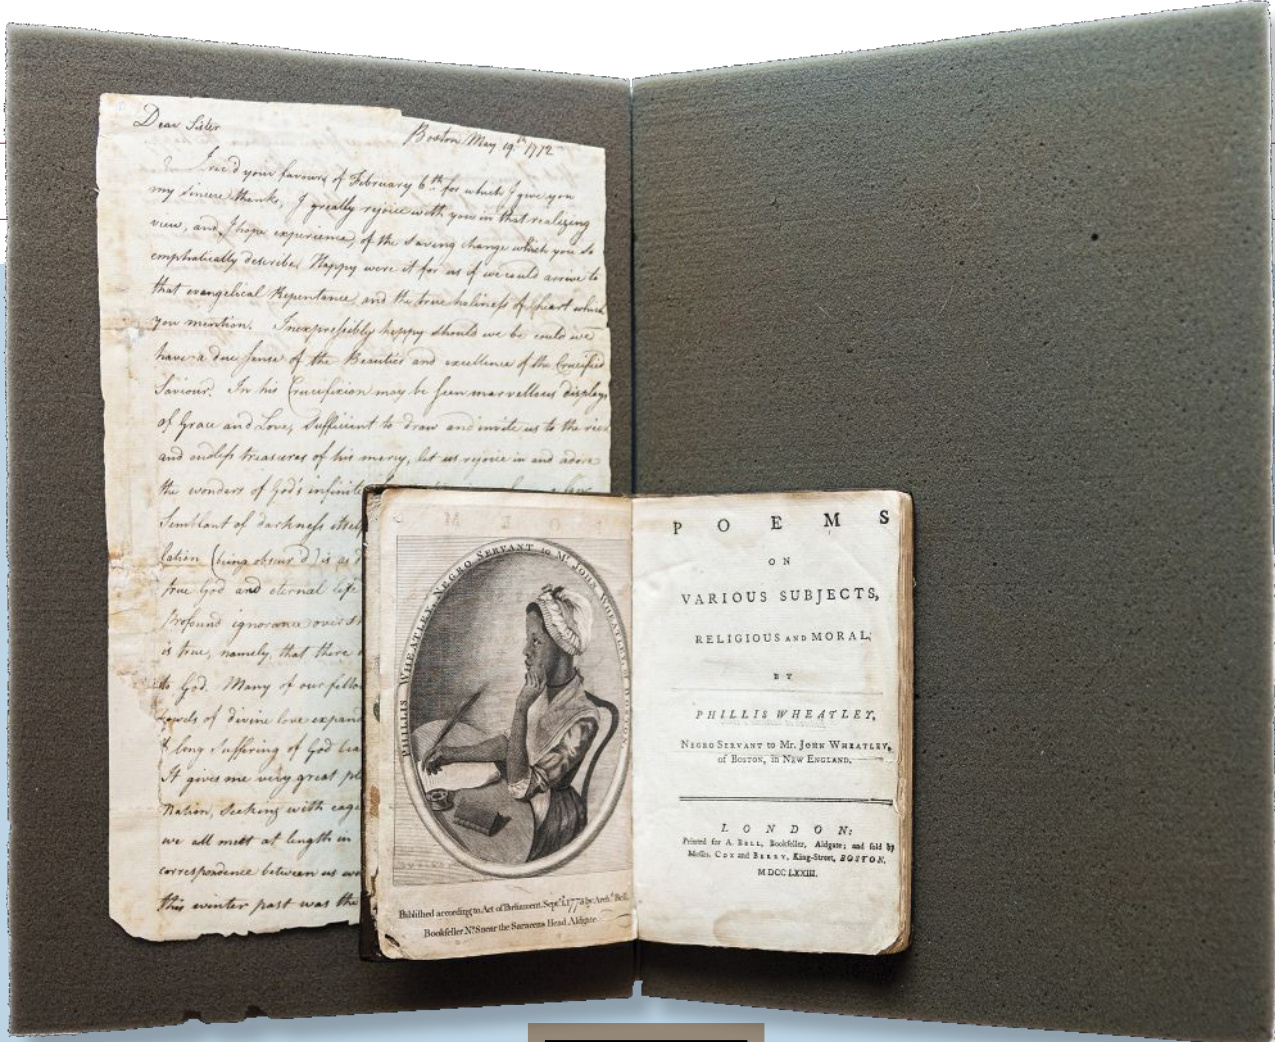 Dear Sister
Boston May 19th 1772
I rec'd your favour of February 6th for which I give you
my sincere thanks, I greatly rejoice with you in that realizing
view, and I hope experience, of the Saving change which you so
emphatically describe. Happy were it for us if we could arrive to
that evangelical Repentance, and the true holiness of heart which
you mention. Inexpressibly happy should we be could we
have a due sense of the Beauties and excellence of the Crucified
Saviour. In his Crucifixion may be seen marvellous displays
of Grace and Love, Sufficient to draw and invite us to the rich
and endless treasures of his mercy, let us rejoice in and adore
the wonders of God's infinite
Semblant of darkness itself
lation (being obscur'd) is as
true God and eternal life
Profound ignorance over
is true, namely, that there
to God. Many of our fellow
bowels of divine love expand
& long Suffering of God
It gives me very great
Nation, Seeking with
we all meet at length in
correspondence between us
this winter past was the
PHILLIS WHEATLEY, NEGRO SERVANT to Mr. JOHN WHEATLEY, of BOSTON.
Published according to Act of Parliament, Sept. 1, 1773 by Arch.d Bell,
Bookseller No. 8 near the Saracens Head Aldgate.
POEMS
ON
VARIOUS SUBJECTS,
RELIGIOUS AND MORAL,
BY
PHILLIS WHEATLEY,
NEGRO SERVANT to Mr. JOHN WHEATLEY,
of BOSTON, in NEW ENGLAND.
LONDON:
Printed for A. BELL, Bookseller, Aldgate; and sold by
Messrs. COX and BERRY, King-Street, BOSTON.
MDCCLXXIII.